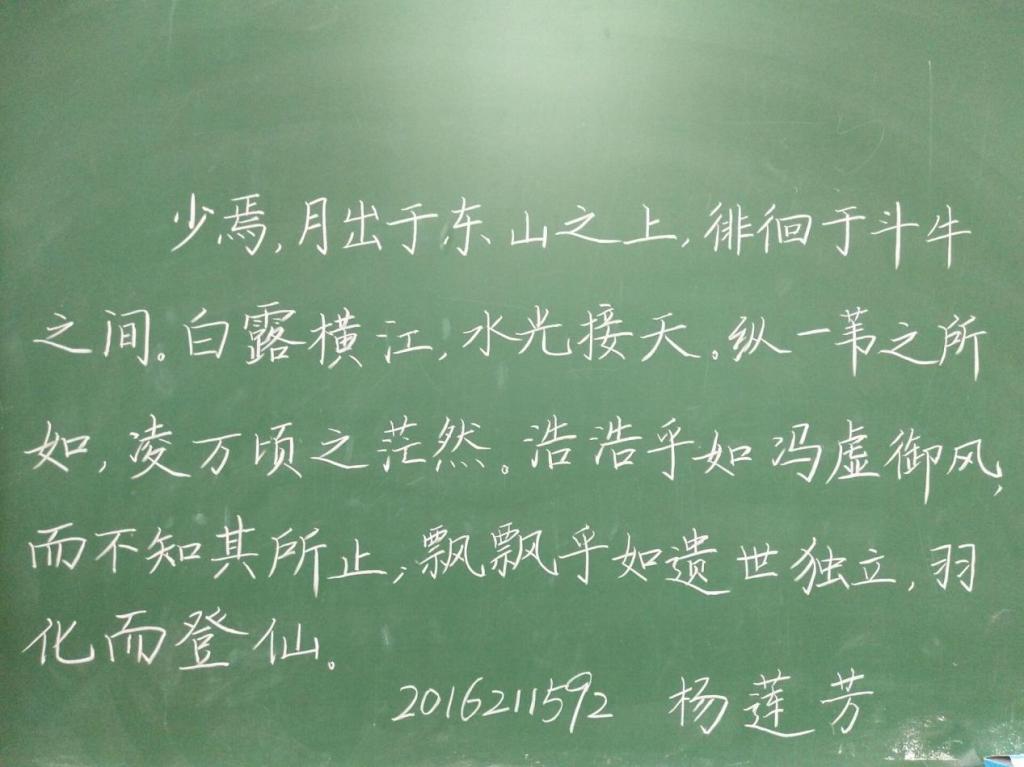 少焉,月出于东山之上,徘徊于斗牛
之间。白露横江,水光接天。纵一苇之所
如,凌万顷之茫然。浩浩乎如冯虚御风,
而不知其所止;飘飘乎如遗世独立,羽
化而登仙。
2016211592 杨莲芳